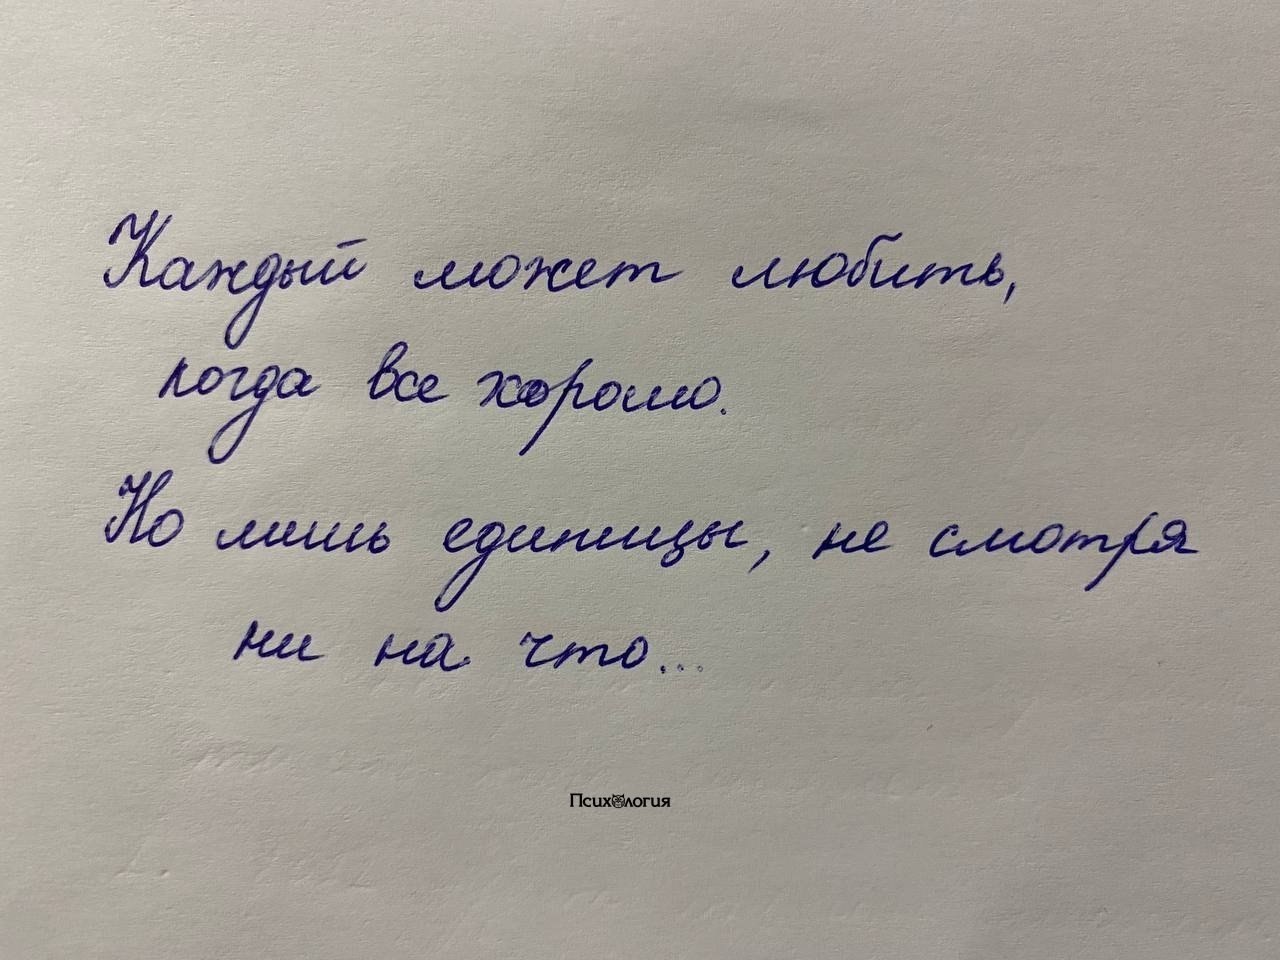 Каждый может любить,
когда все хорошо.
Но лишь единицы, не смотря
ни на что...
Психология